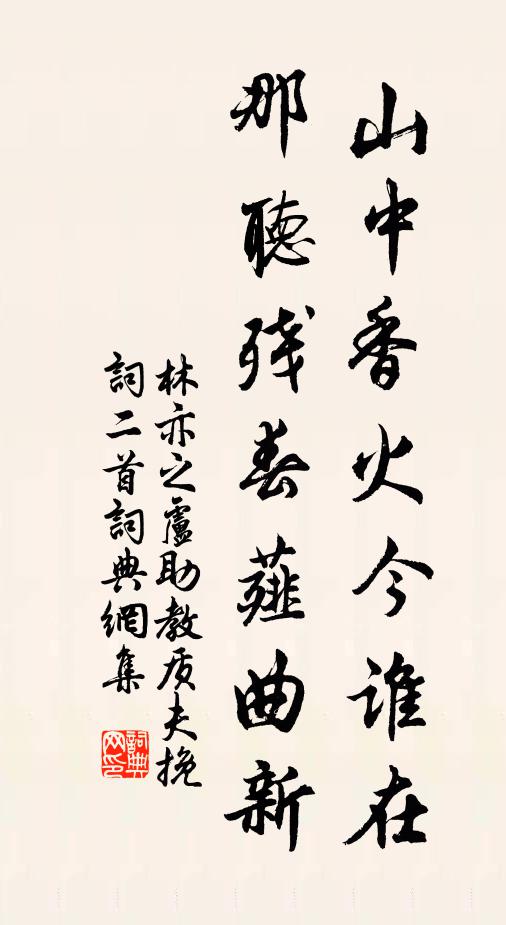 山中香火今谁在
那聴残春薤曲新
林亦之盧助教质夫挽
詞二首詞典網集
詞典网印